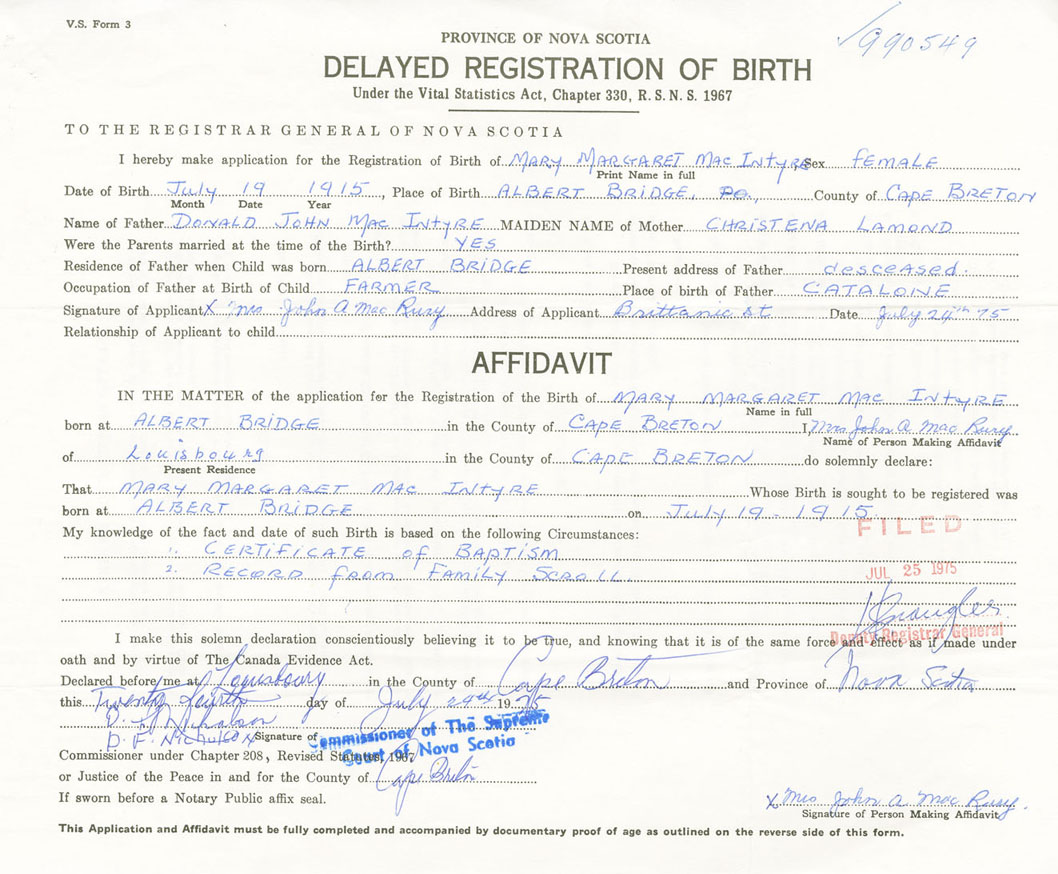 V.S. Form 3
990549
PROVINCE OF NOVA SCOTIA
DELAYED REGISTRATION OF BIRTH
Under the Vital Statistics Act, Chapter 330, R. S. N. S. 1967
TO THE REGISTRAR GENERAL OF NOVA SCOTIA
I hereby make application for the Registration of Birth of MARY MARGARET MAC INTYRE Sex FEMALE
Print Name in full
Date of Birth July 19 1915, Place of Birth ALBERT BRIDGE, County of CAPE BRETON
Month Date Year
Name of Father DONALD JOHN MAC INTYRE MAIDEN NAME of Mother CHRISTENA LAMOND
Were the Parents married at the time of the Birth? YES
Residence of Father when Child was born ALBERT BRIDGE Present address of Father desceased.
Occupation of Father at Birth of Child FARMER Place of birth of Father CATALONE
Signature of Applicant X Mrs John A Mac Rury Address of Applicant Brittanic st Date July 24th 75
Relationship of Applicant to child
AFFIDAVIT
IN THE MATTER of the application for the Registration of the Birth of MARY MARGARET MAC INTYRE
Name in full
born at ALBERT BRIDGE in the County of CAPE BRETON I, Mrs John A Mac Rury
Name of Person Making Affidavit
of Louisbourg in the County of CAPE BRETON do solemnly declare:
Present Residence
That MARY MARGARET MAC INTYRE Whose Birth is sought to be registered was
born at ALBERT BRIDGE on July 19 - 1915
FILED
My knowledge of the fact and date of such Birth is based on the following Circumstances:
1. CERTIFICATE of BAPTISM
2. RECORD from FAMILY SCROLL
JUL 25 1975
Deputy Registrar General
I make this solemn declaration conscientiously believing it to be true, and knowing that it is of the same force and effect as if made under
oath and by virtue of The Canada Evidence Act.
Declared before me at Louisbourg in the County of Cape Breton and Province of Nova Scotia
this Twenty Fourth day of July 24th 1975
D. F. Nicholson
D. F. Nicholson Signature of
Commissioner of The Supreme
Court of Nova Scotia
Commissioner under Chapter 208, Revised Statutes, 1967
or Justice of the Peace in and for the County of Cape Breton
If sworn before a Notary Public affix seal.
X Mrs John A Mac Rury.
Signature of Person Making Affidavit
This Application and Affidavit must be fully completed and accompanied by documentary proof of age as outlined on the reverse side of this form.